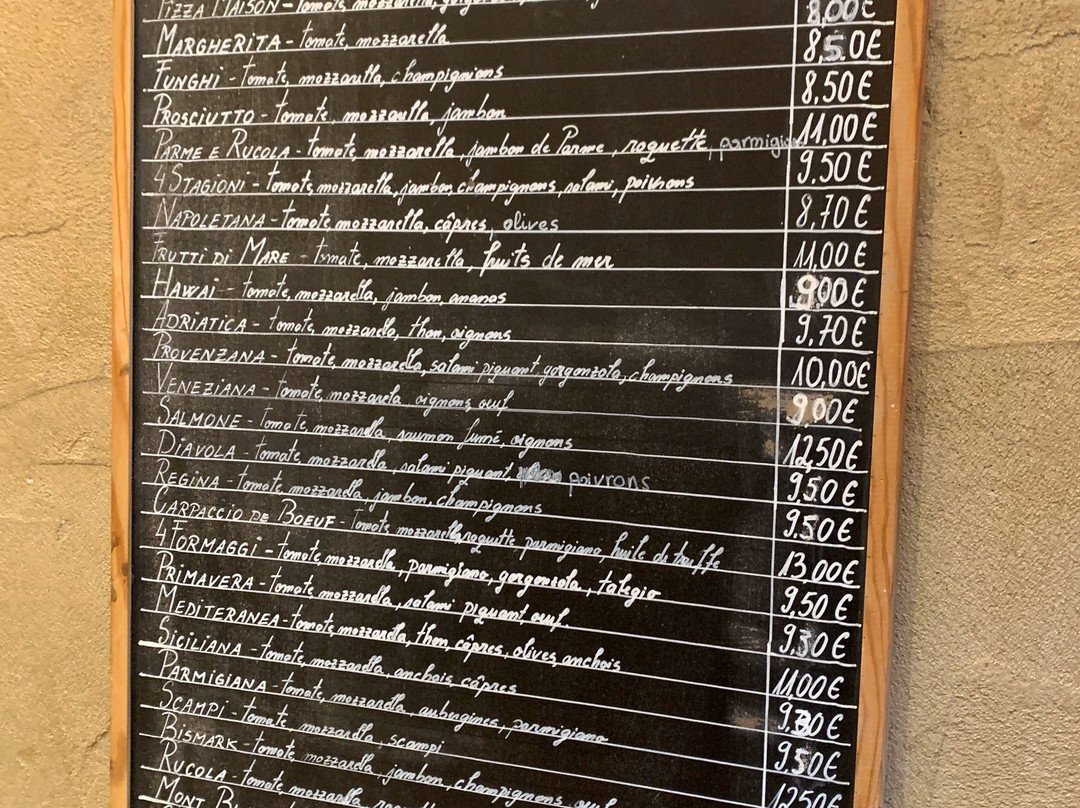 PIZZA MAISON - tomate, mozzarella,
MARGHERITA - tomate, mozzarella 8,00€
FUNGHI - tomate, mozzarella, champignons 8,50€
PROSCIUTTO - tomate, mozzarella, jambon 8,50€
PARME E RUCOLA - tomate, mozzarella, jambon de Parme, roquette, parmigian 11,00€
4 STAGIONI - tomate, mozzarella, jambon champignons, salami, poivrons 9,50€
NAPOLETANA - tomate, mozzarella, câpres, olives 8,70€
FRUTTI DI MARE - tomate, mozzarella, fruits de mer 11,00€
HAWAI - tomate, mozzarella, jambon, ananas 9,00€
ADRIATICA - tomate, mozzarella, thon, oignons 9,70€
PROVENZANA - tomate, mozzarella, salami piquant, gorgonzola, champignons 10,00€
VENEZIANA - tomate, mozzarela oignons, oeuf 9,00€
SALMONE - tomate, mozzarella, saumon fumé, oignons 12,50€
DIAVOLA - tomate mozzarella, salami piquant, poivrons 9,50€
REGINA - tomate, mozzarella, jambon, champignons 9,50€
CARPACCIO DE BOEUF - tomate mozzarella, roquette parmigiano, huile de truffe 13,00€
4 FORMAGGI - tomate, mozzarella, parmigiano, gorgonzola, talegio 9,50€
PRIMAVERA - tomate, mozzarella, salami piquant, oeuf 9,30€
MEDITERANEA - tomate, mozzarella, thon, câpres, olives, anchois 11,00€
SICILIANA - tomate, mozzarella, anchois, câpres 9,30€
PARMIGIANA - tomate, mozzarella, aubergines, parmigiano 9,50€
SCAMPI - tomate, mozzarella, scampi 12,50€
BISMARK - tomate, mozzarella, jambon, champignons, oeuf
RUCOLA - tomate, mozzarella,
MONT